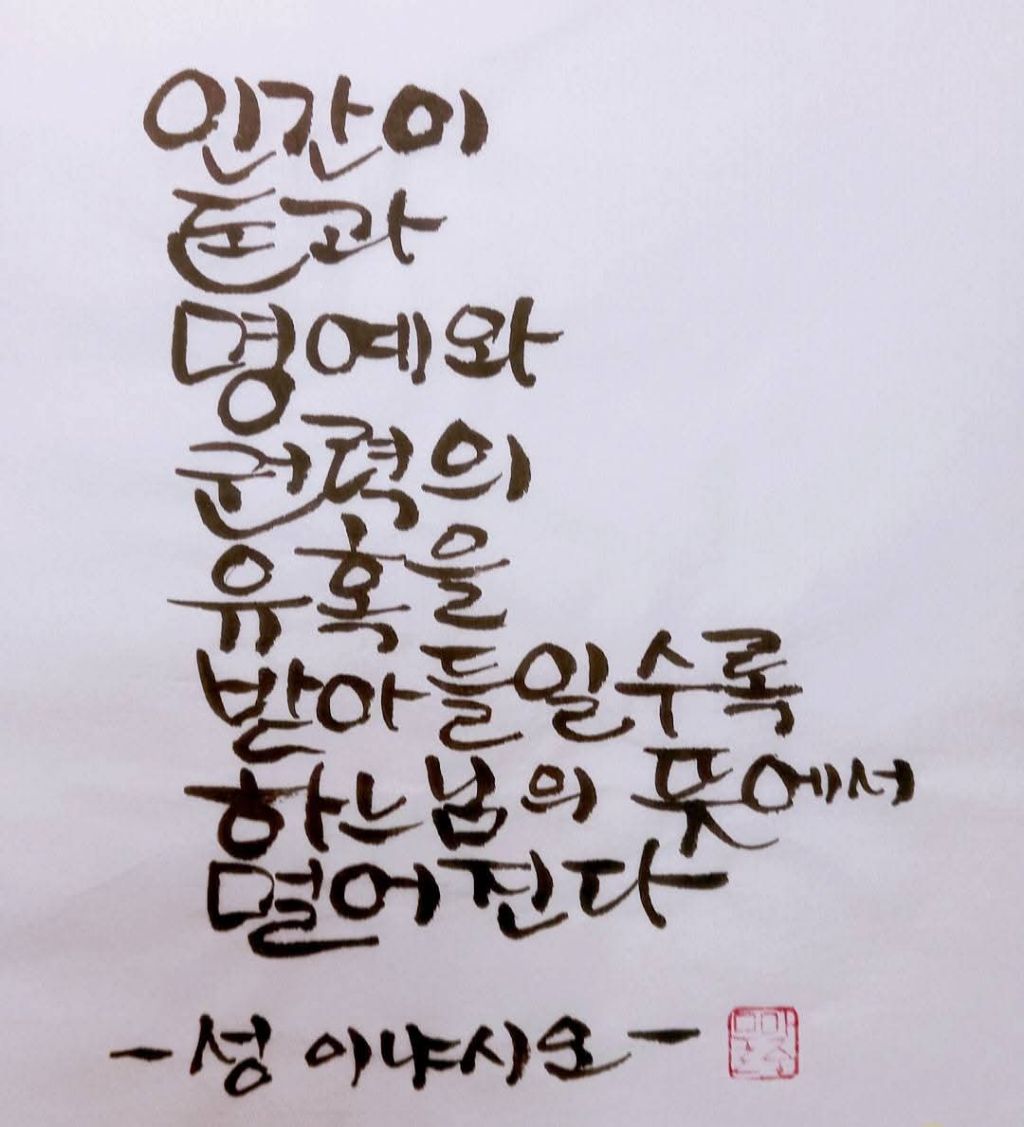 인간이
돈과
명예와
권력의
유혹을
받아들일수록
하느님의 뜻에서
멀어진다
- 성 이냐시오 -